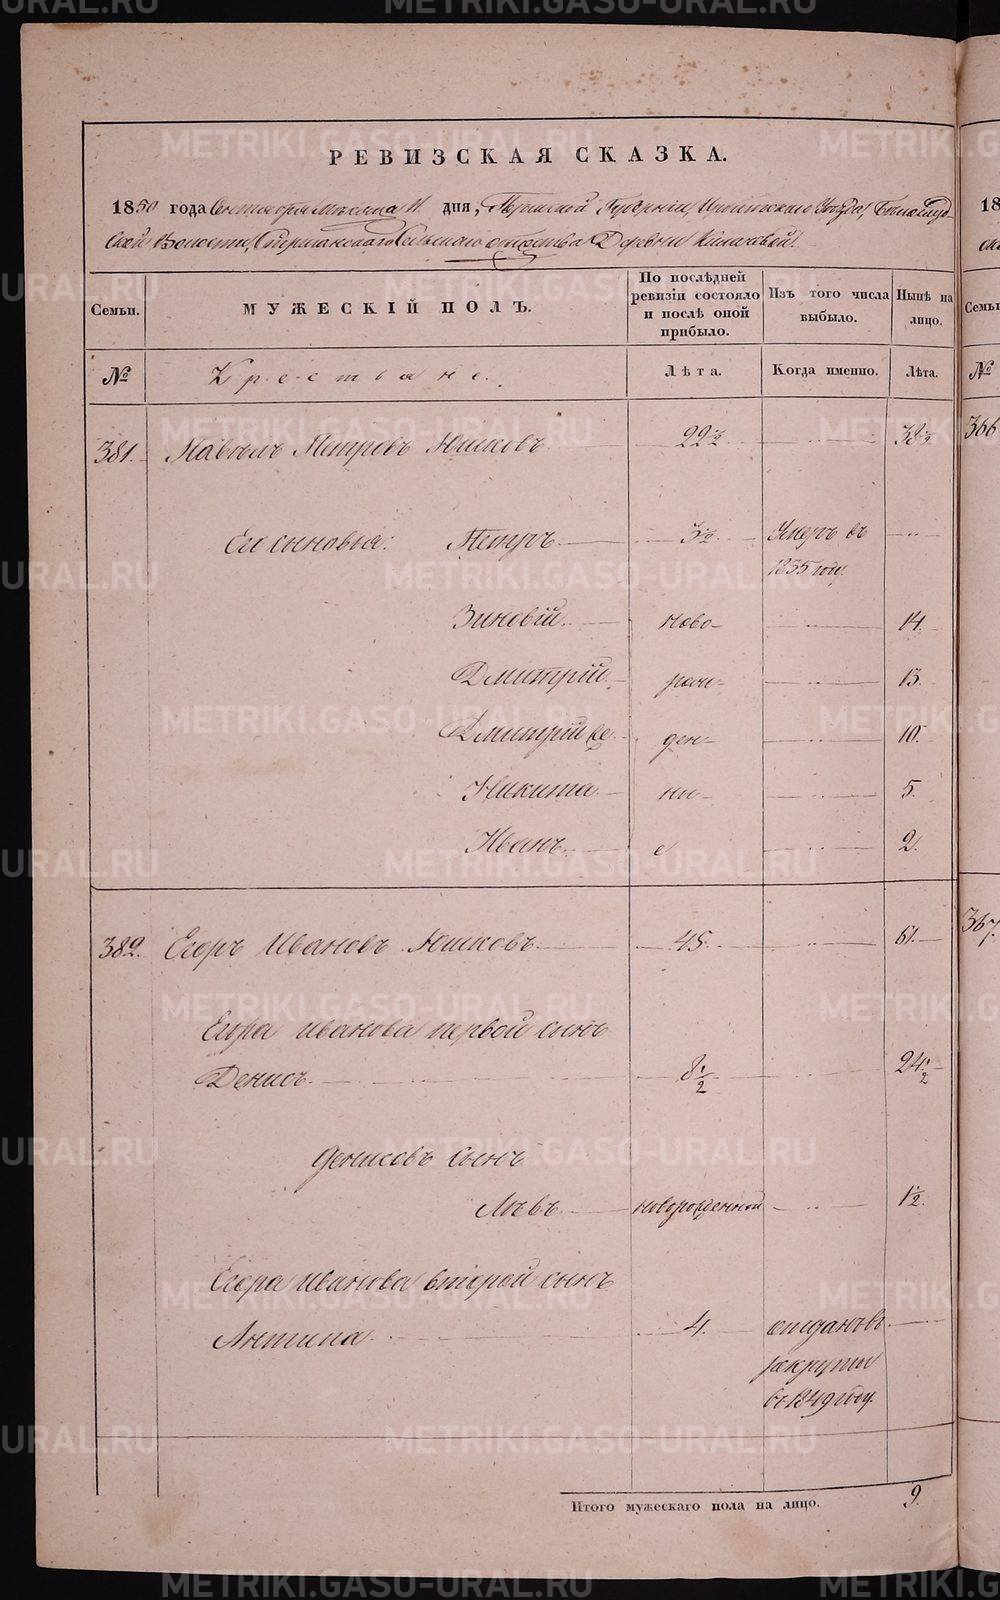 РЕВИЗСКАЯ СКАЗКА.
1850 года Сентября Месяца 11 дня, Пермской Губернiи, Ирбитскаго Уезда, Белослуд-
ской Волости, Сельскаго общества Деревни
Семьи.
МУЖЕСКIЙ ПОЛЪ.
По послѣдней ревизiи состояло и послѣ оной прибыло.
Изъ того числа выбыло.
Нынѣ на лицо.
№
Крестьяне.
Лѣта.
Когда именно.
Лѣта.
381. Павелъ Петровъ Юшковъ 22½ 38½
Его сыновья: Петръ 3½ Умеръ въ
1835 году.
Зиновiй ново- 14.
Дмитрiй рож- 13.
Дмитрiй же ден- 10.
Никита ны- 5.
Иванъ е 2.
382. Егоръ Ивановъ Юшковъ 45. 61.
Егора Иванова первой сынъ
Денисъ. 8½ 24½
Денисовъ сынъ
Левъ новорожденной 1½
Егора Иванова второй сынъ
Антипа 4. отданъ въ
рекруты
въ 1849 году.
Итого мужескаго пола на лицо. 9.
18
Семьи
№
366
367
METRIKI.GASO-URAL.RU